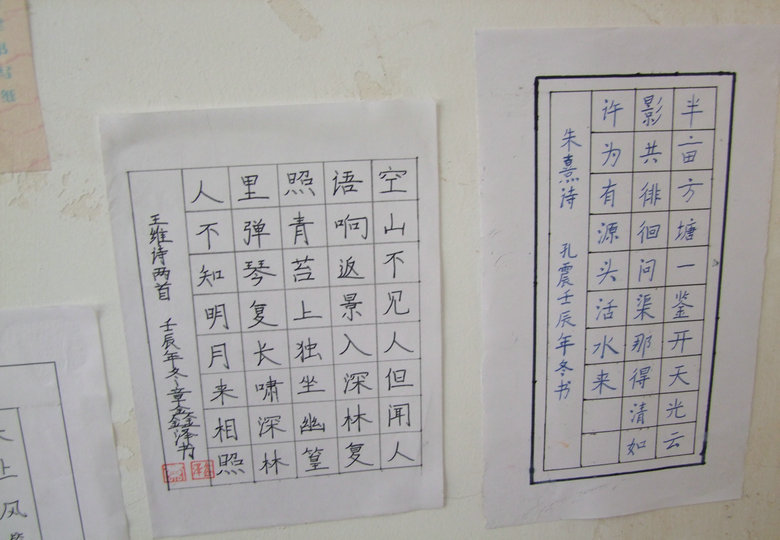 空山不见人但闻人
语响返景入深林复
照青苔上独坐幽篁
里弹琴复长啸深林
人不知明月来相照
王维诗两首 壬辰年冬章鑫泽书
半亩方塘一鉴开天光云
影共徘徊问渠那得清如
许为有源头活水来
朱熹诗 孔震壬辰年冬书
上风